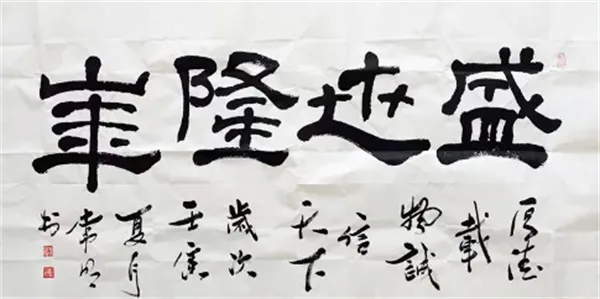 盛世隆
厚德
載
物誠
信
天下
歲次
壬寅
夏月
常明
书